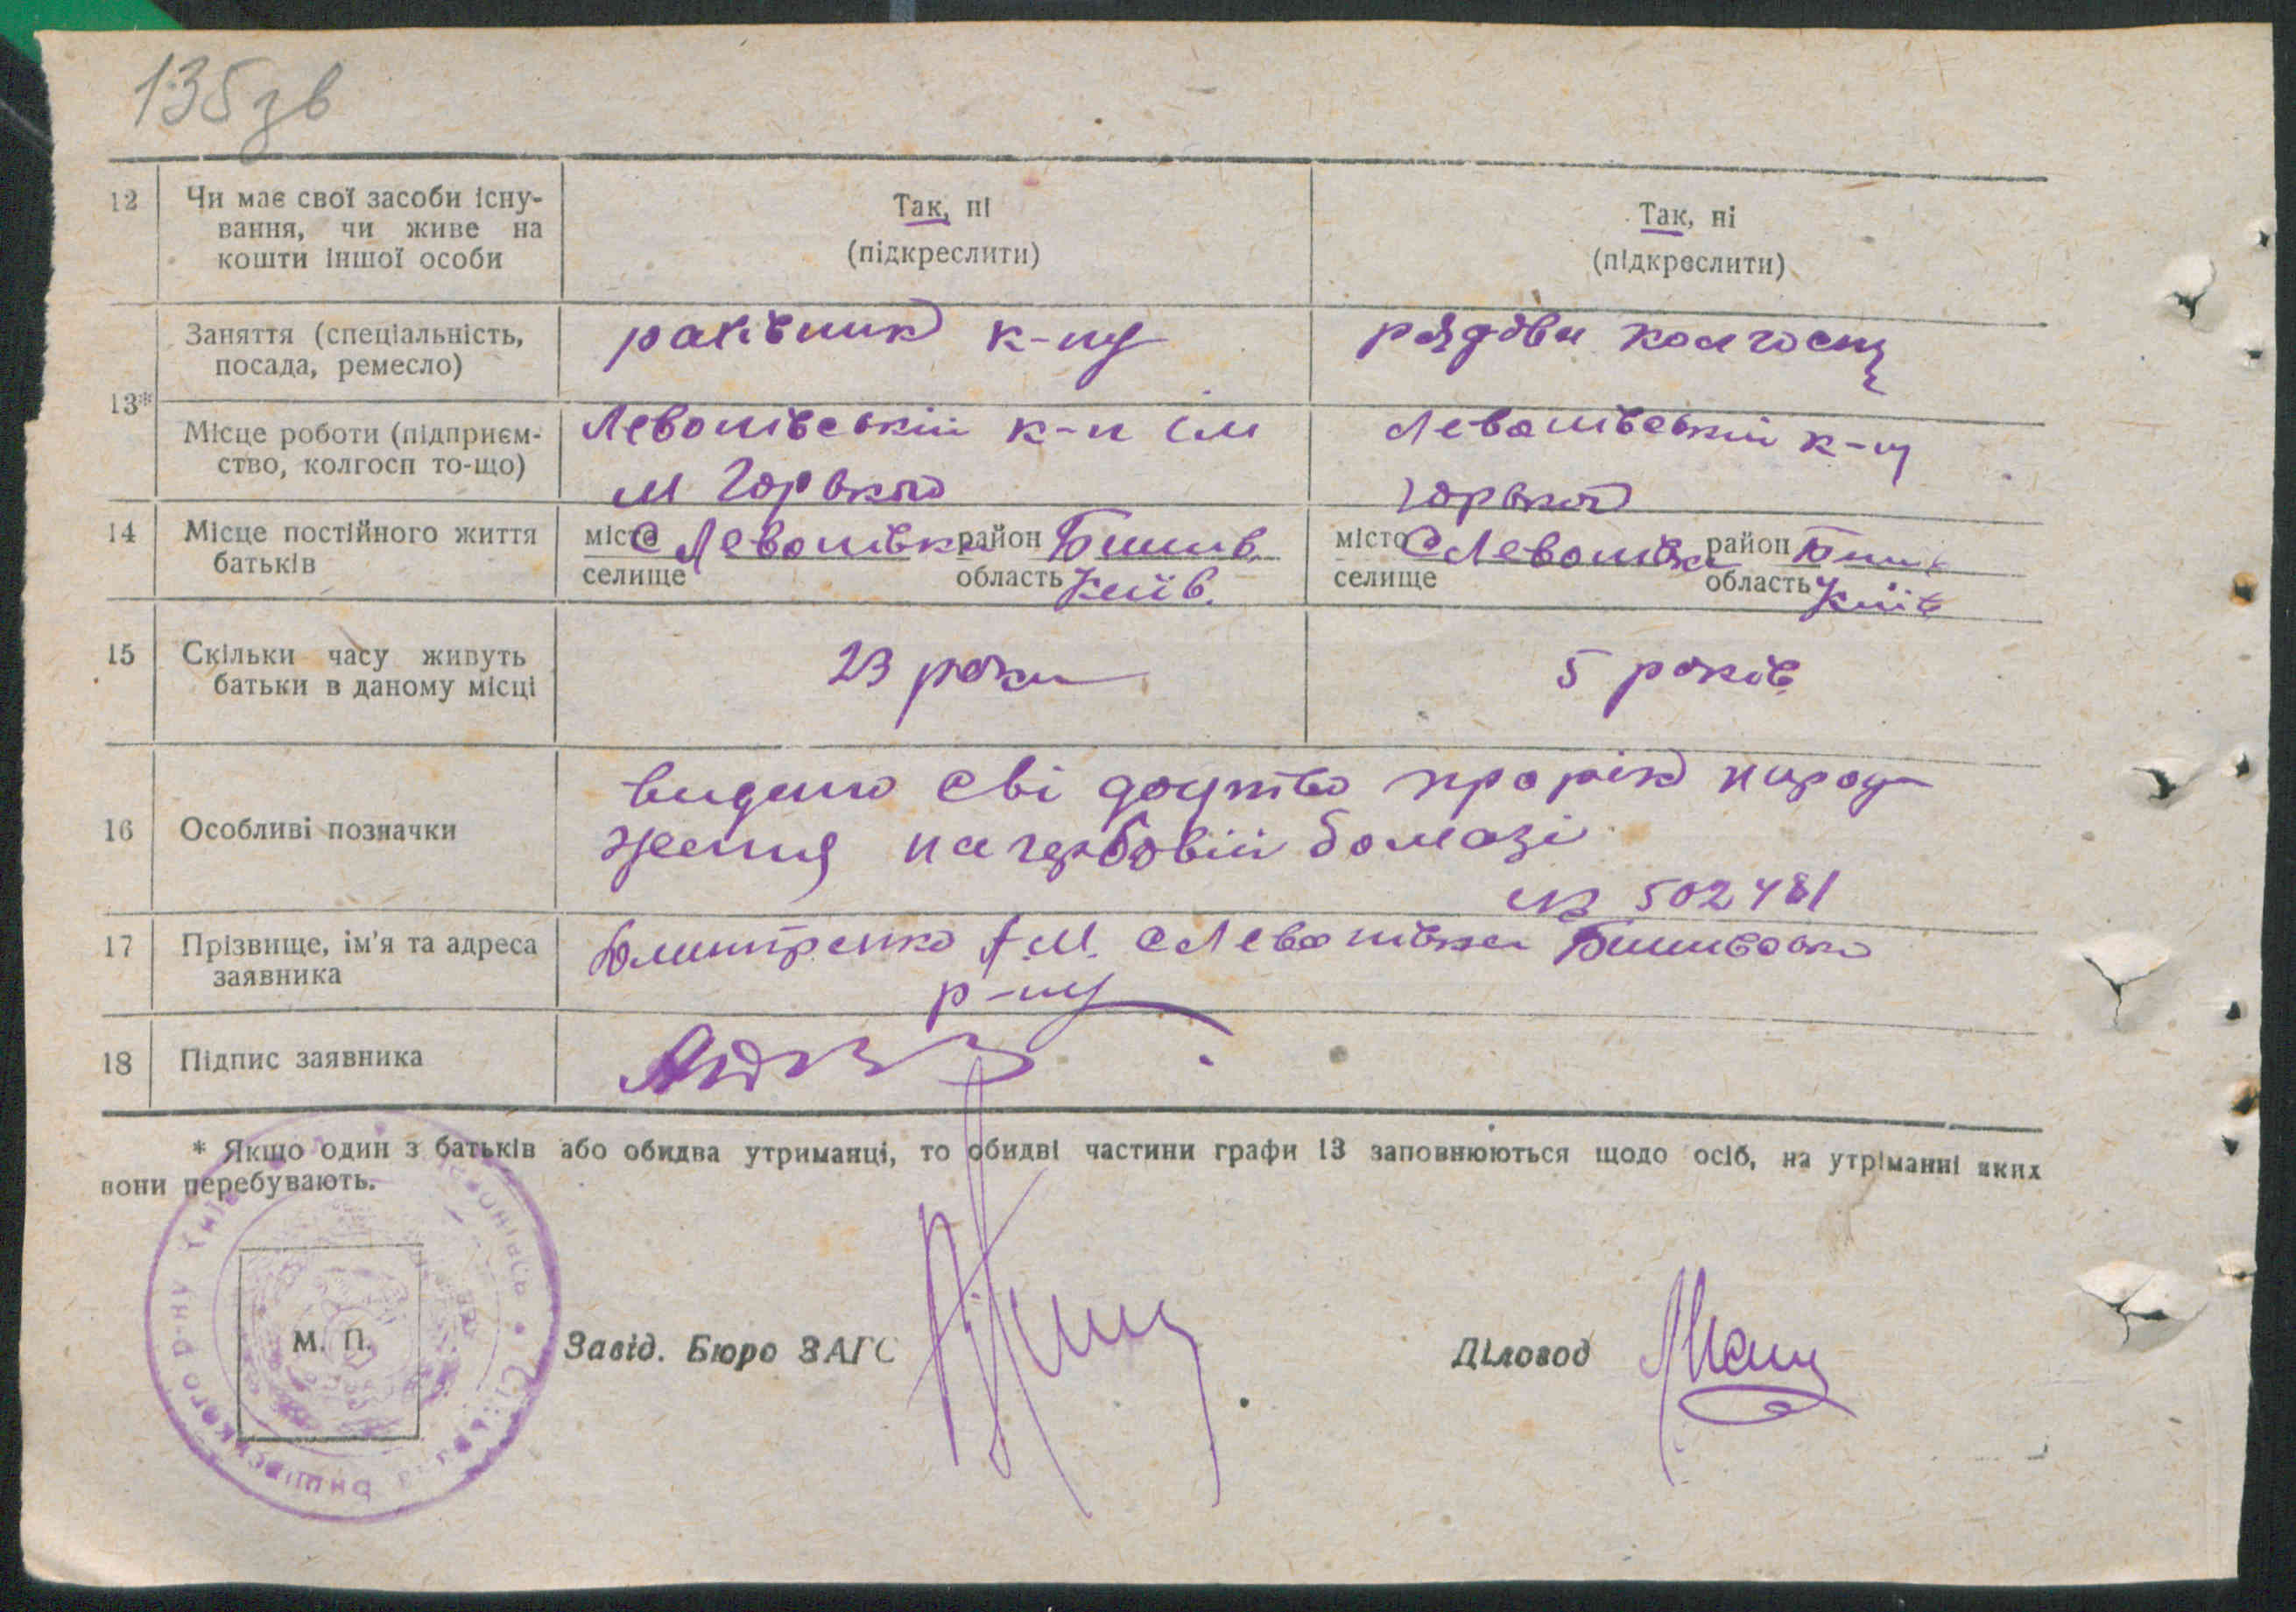 135зв
12 Чи має свої засоби існу-
вання, чи живе на
кошти іншої особи
Так, ні
(підкреслити)
Так, ні
(підкреслити)
13*
Заняття (спеціальність,
посада, ремесло)
рахівник к-пу
рядови колгосп
Місце роботи (підприєм-
ство, колгосп то-що)
Левонівський к-п ім
М Горького
Левонівський к-п
Горького
14 Місце постійного життя
батьків
місто С Левонівка район Бишив.
селище область Київ.
місто С Левонівка район Биш
селище область Київ
15 Скільки часу живуть
батьки в даному місці
23 роки
5 років
16 Особливі позначки
видано сві доцтво про рік народ
ження на гербовій бомазі
№ 502481
17 Прізвище, ім'я та адреса
заявника
Дмитренко А.М. С Левонівка Бишівсько
р-ну
18 Підпис заявника
* Якщо один з батьків або обидва утриманці, то обидві частини графи 13 заповнюються щодо осіб, на утріманні яких
вони перебувають.
М. П.
Завід. Бюро ЗАГС
Діловод